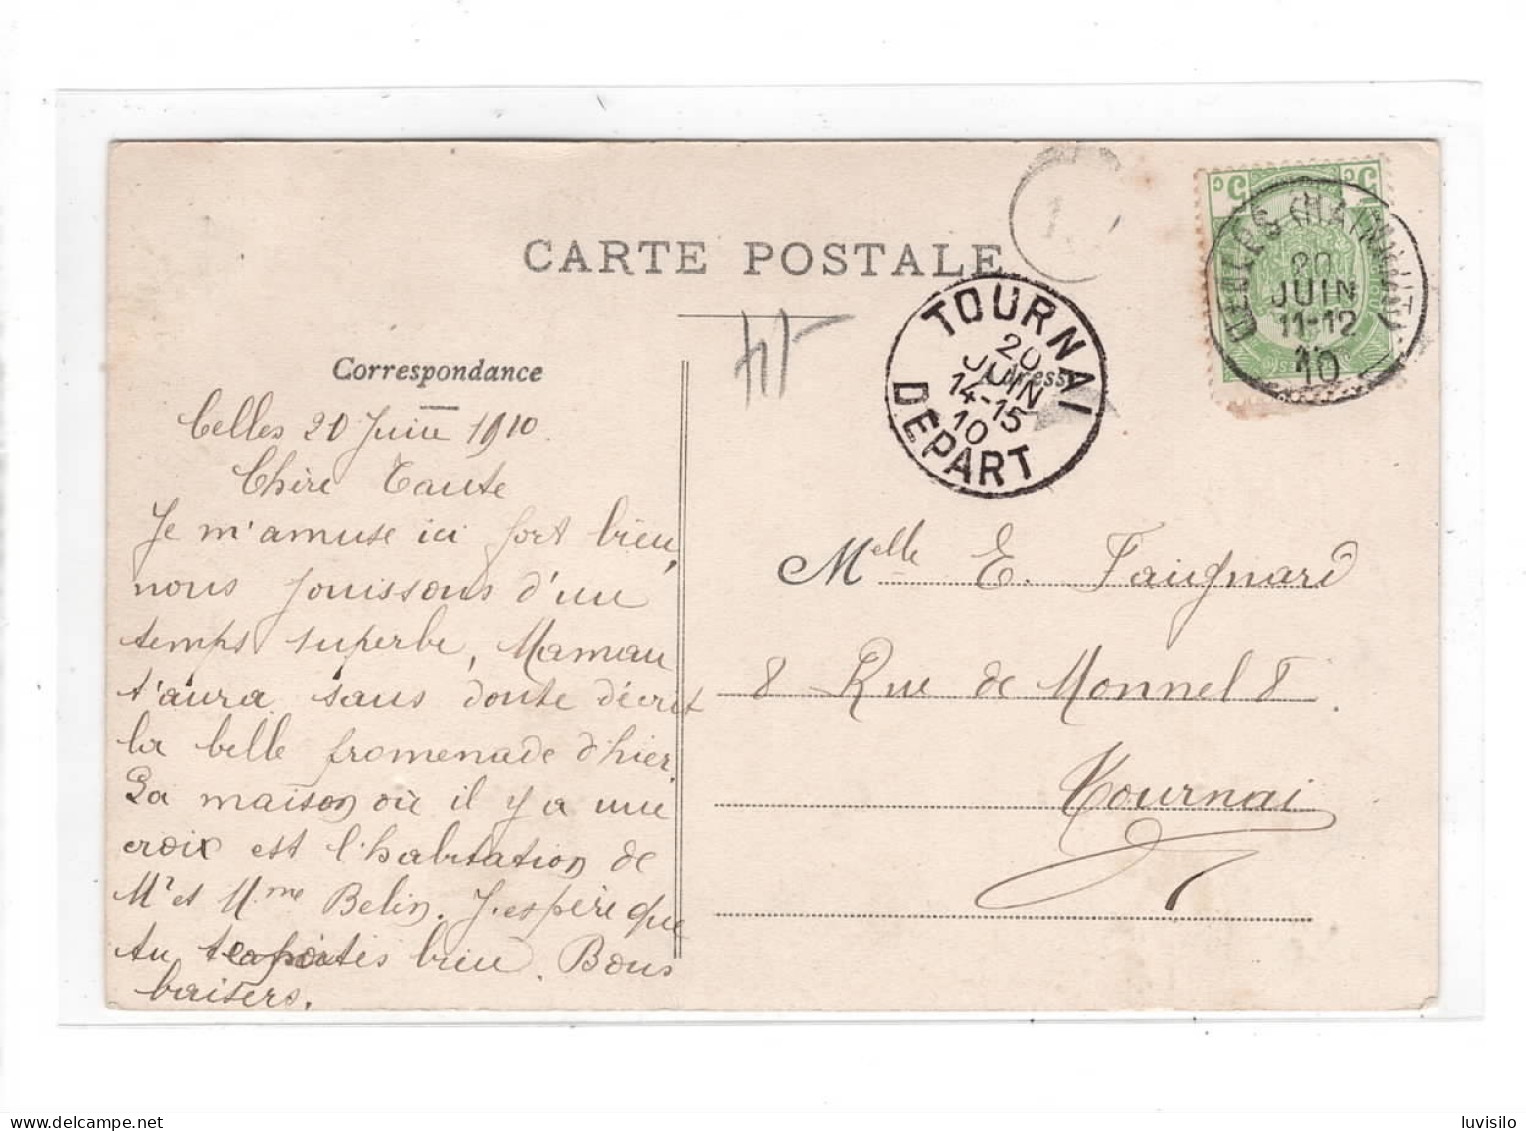 CARTE POSTALE
Correspondance
Celles 20 Juin 1910.
Chère Tante
Je m'amuse ici fort bien,
nous jouissons d'un
temps superbe, Maman
t'aura sans doute décrit
la belle promenade d'hier.
La maison où il y a une
croix est l'habitation de
Mr et Mme Belin. J'espère que
tu te portes bien. Bons
baisers.
TOURNAI
20
JUIN
14-15
10
DEPART
CELLES (HAINAUT)
20
JUIN
11-12
10
5c 5c
Melle E. Faignard
8 Rue de Monnel 8.
Tournai
delcampe.net
luvisilo